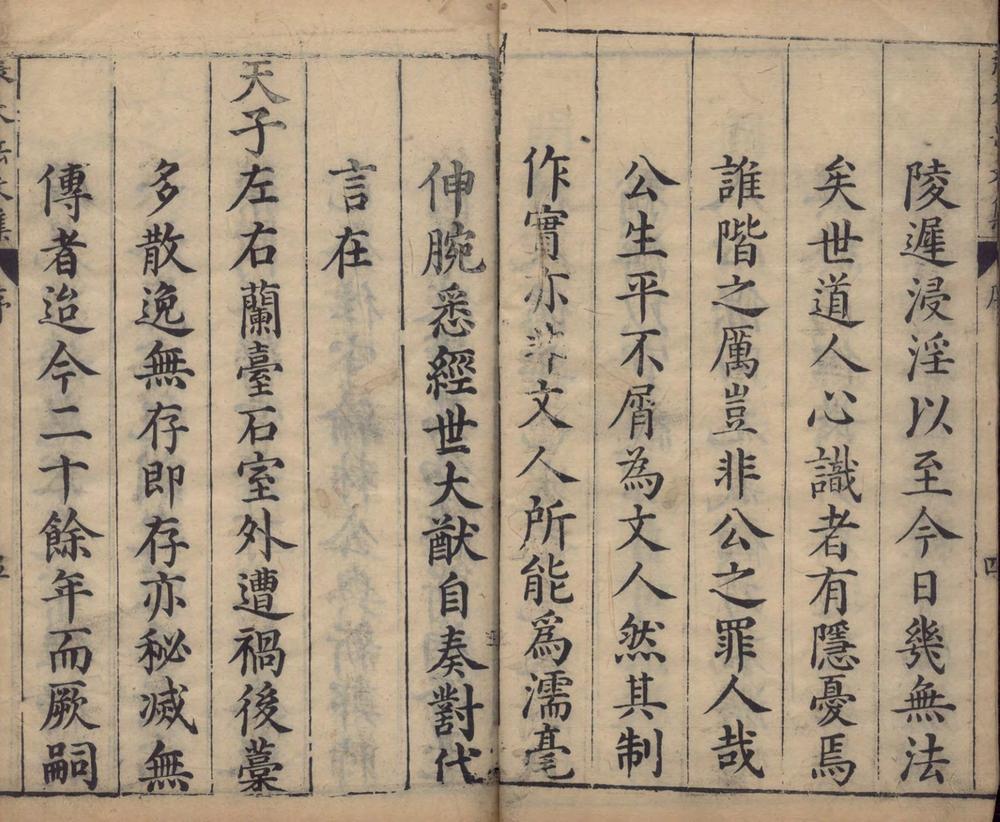 陵遲浸淫以至今日幾無法
矣世道人心識者有隱憂焉
誰階之厲豈非公之罪人哉
公生平不屑為文人然其制
作實亦非文人所能爲濡毫
伸腕悉經世大猷自奏對代
言在
天子左右蘭臺石室外遭禍後藁
多散逸無存即存亦秘滅無
傳者迨今二十餘年而厥嗣